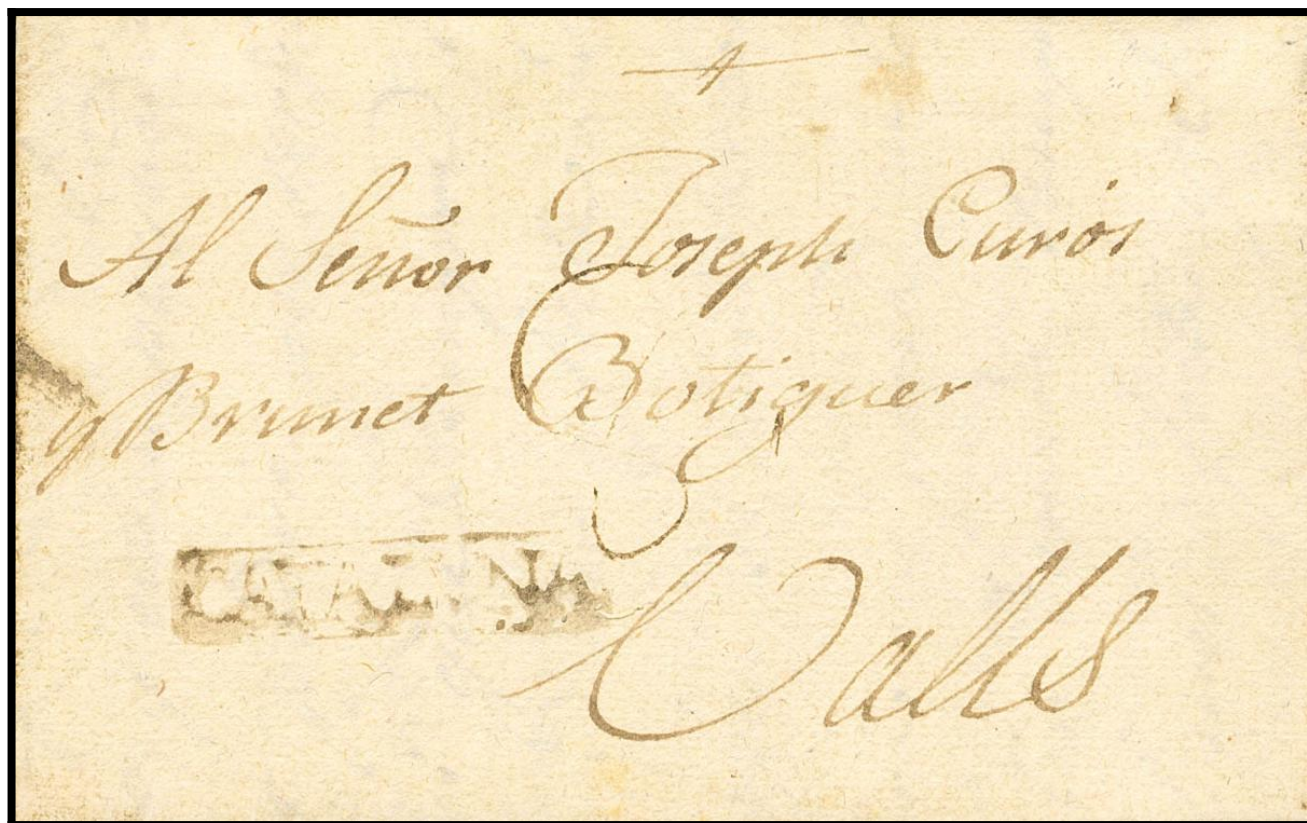 Al Señor Joseph Curós
y Brunet Botiguer
Valls